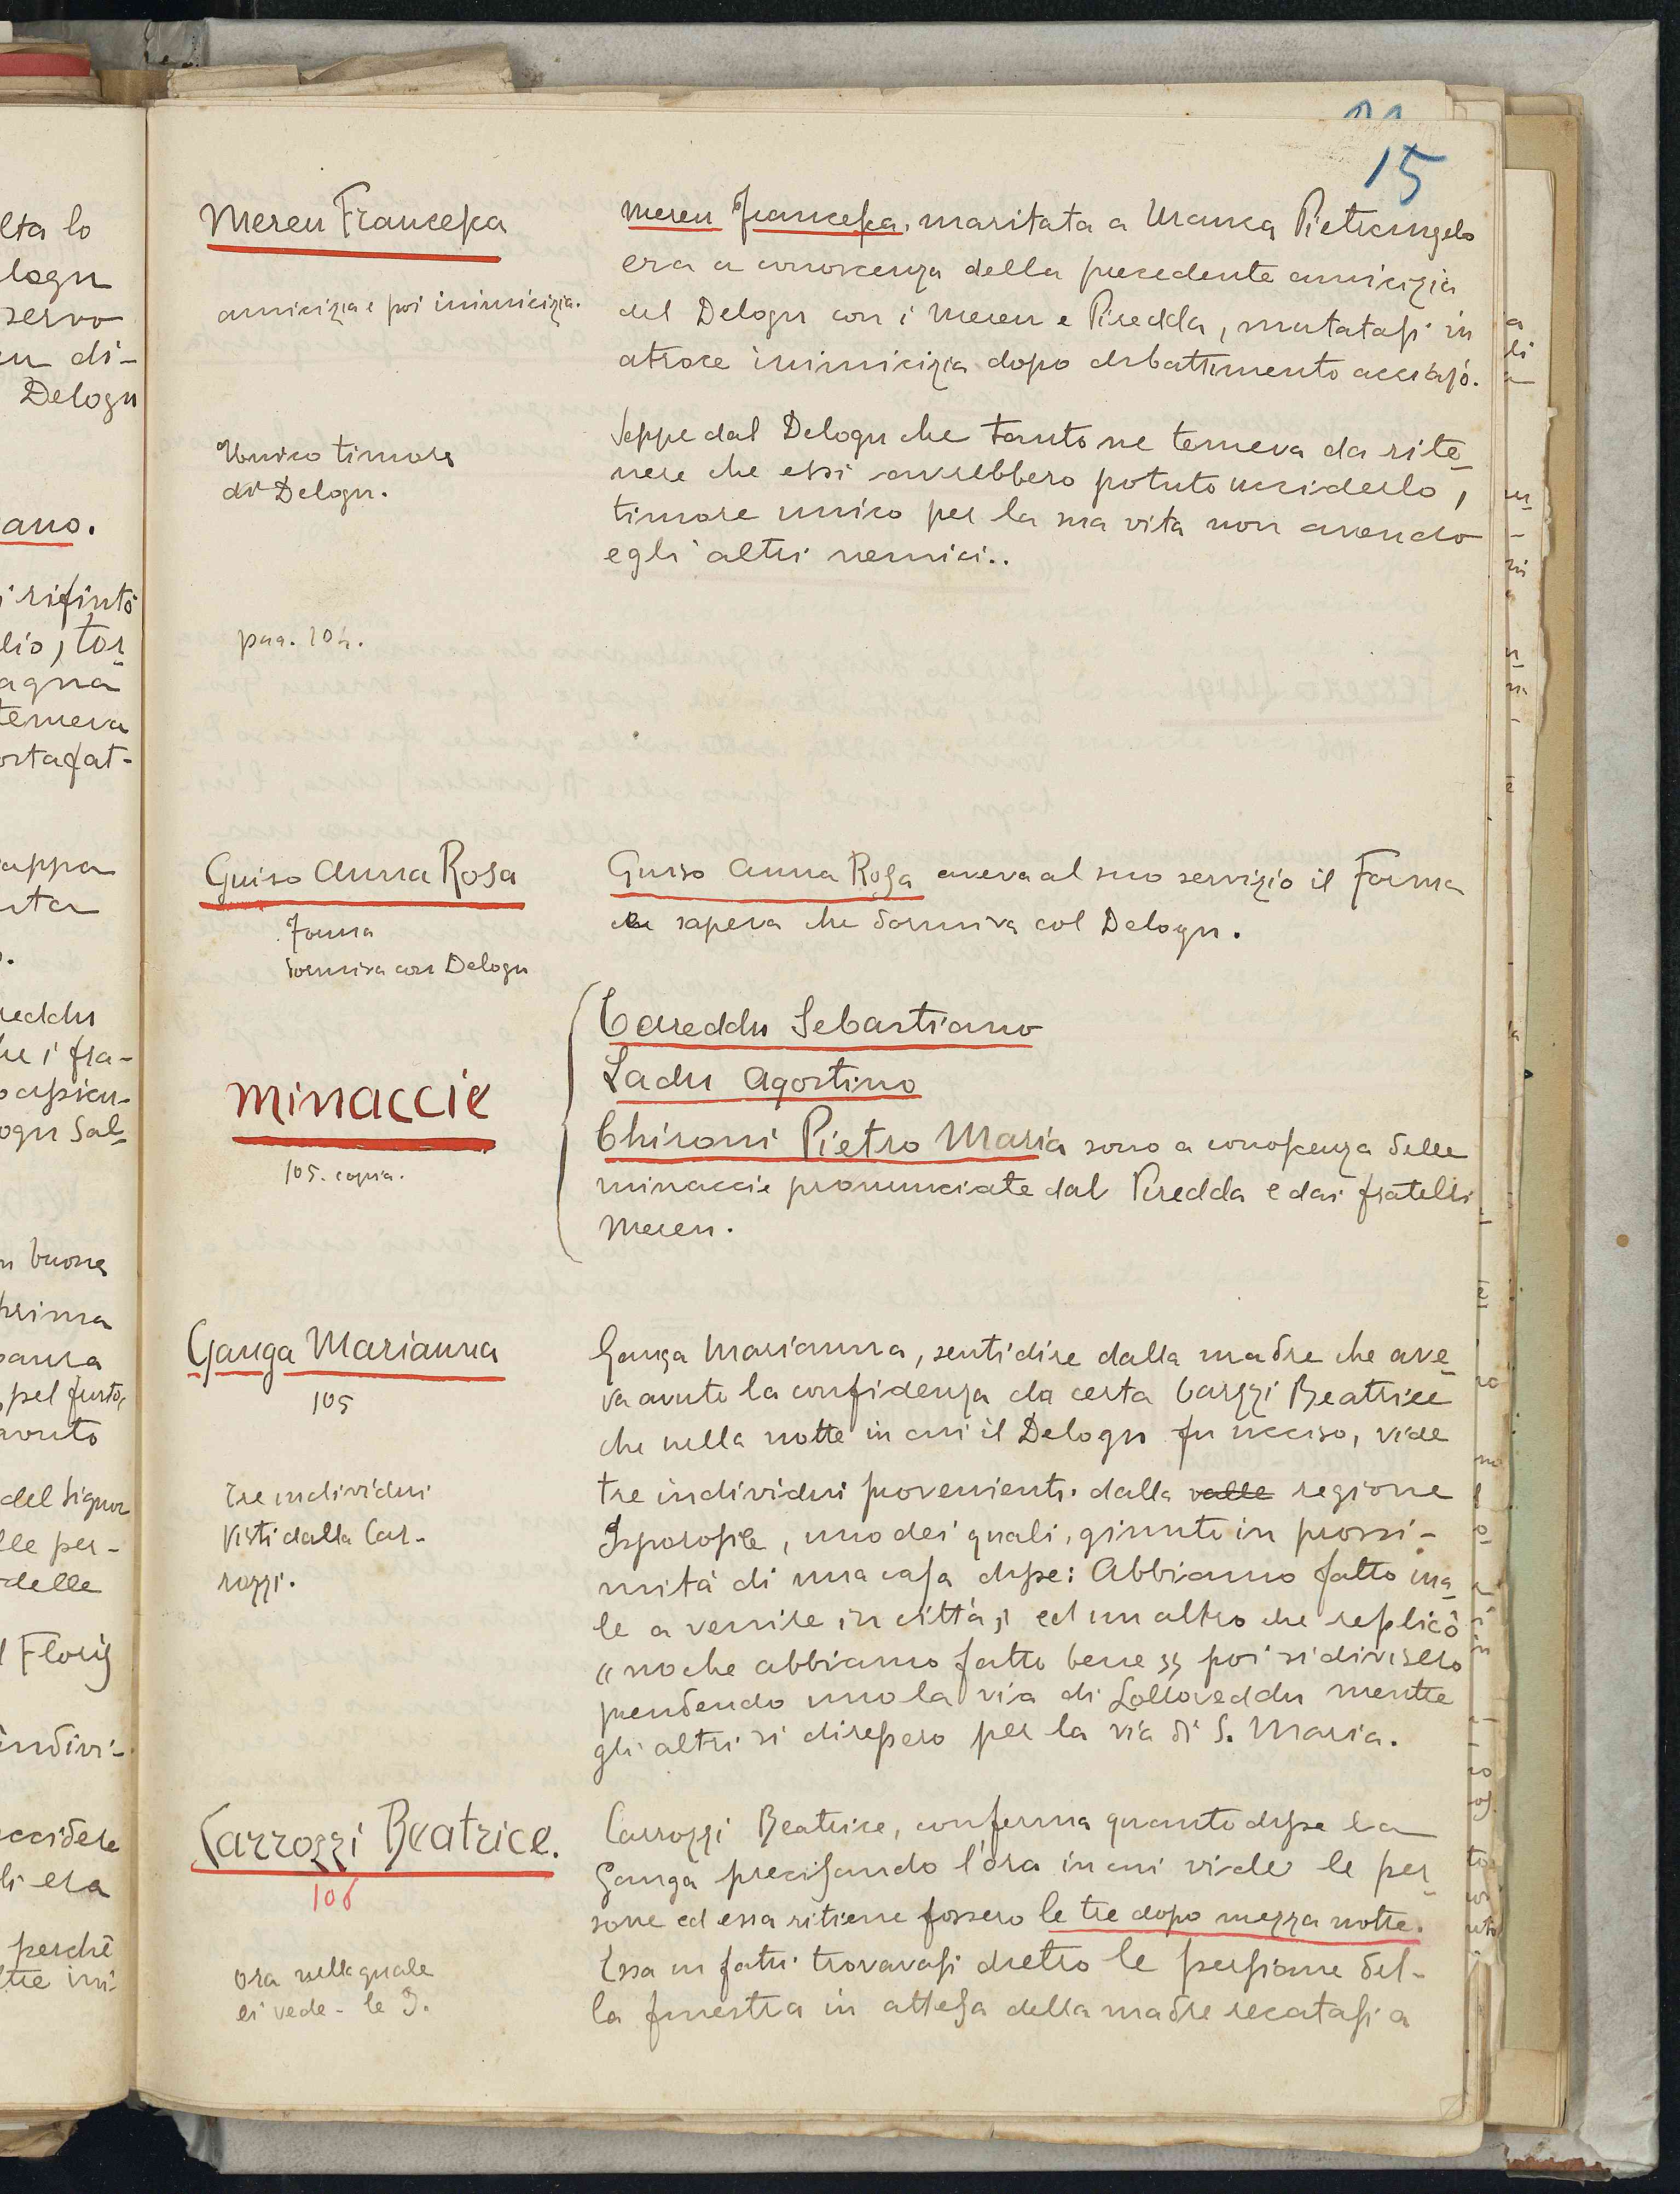 15
Mereu Francesca
amicizia e poi inimicizia.
Mereu Francesca, maritata a Manca Pietrangelo
era a conoscenza della precedente amicizia
del Delogu con i Mereu e Piredda, mutatasi in
atroce inimicizia dopo dibattimento
Unico timore
di Delogu.
Seppe dal Delogu che tanto ne temeva da rite-
nere che essi avrebbero potuto ucciderlo,
timore unico per la sua vita non avendo
egli altri nemici..
pag. 104.
Guiso Anna Rosa
Fonna
dormiva con Delogu
Guiso Anna Rosa aveva al suo servizio il Fonna
e sapeva che dormiva col Delogu.
minaccie
105. copia.
Careddu Sebastiano
Ladu Agostino
Chironi Pietro Maria sono a conoscenza delle
minaccie pronunciate dal Piredda e dai fratelli
Mereu.
Ganga Marianna
105
Tre individui
visti dalla Car-
rozzi.
Ganga Marianna, sentì dire dalla madre che ave-
va avuto la confidenza da certa Carozzi Beatrice
che nella notte in cui il Delogu fu ucciso, vide
tre individui provenienti dalla valle regione
uno dei quali, giunto in prossi-
mità di una casa disse: Abbiamo fatto ma-
le a venire in città, ed un altro che replicò
"no che abbiamo fatto bene" poi si divisero
prendendo uno la via di Lolloveddu mentre
gli altri si diressero per la via di S. Maria.
Carrozzi Beatrice.
106
ora nella quale
li vede - le 3.
Carrozzi Beatrice, conferma quanto disse la
Ganga precisando l'ora in cui vide le per-
sone ed essa ritiene fossero le tre dopo mezza notte.
Essa in fatti trovavasi dietro le persiane del-
la finestra in attesa della madre recatasi a